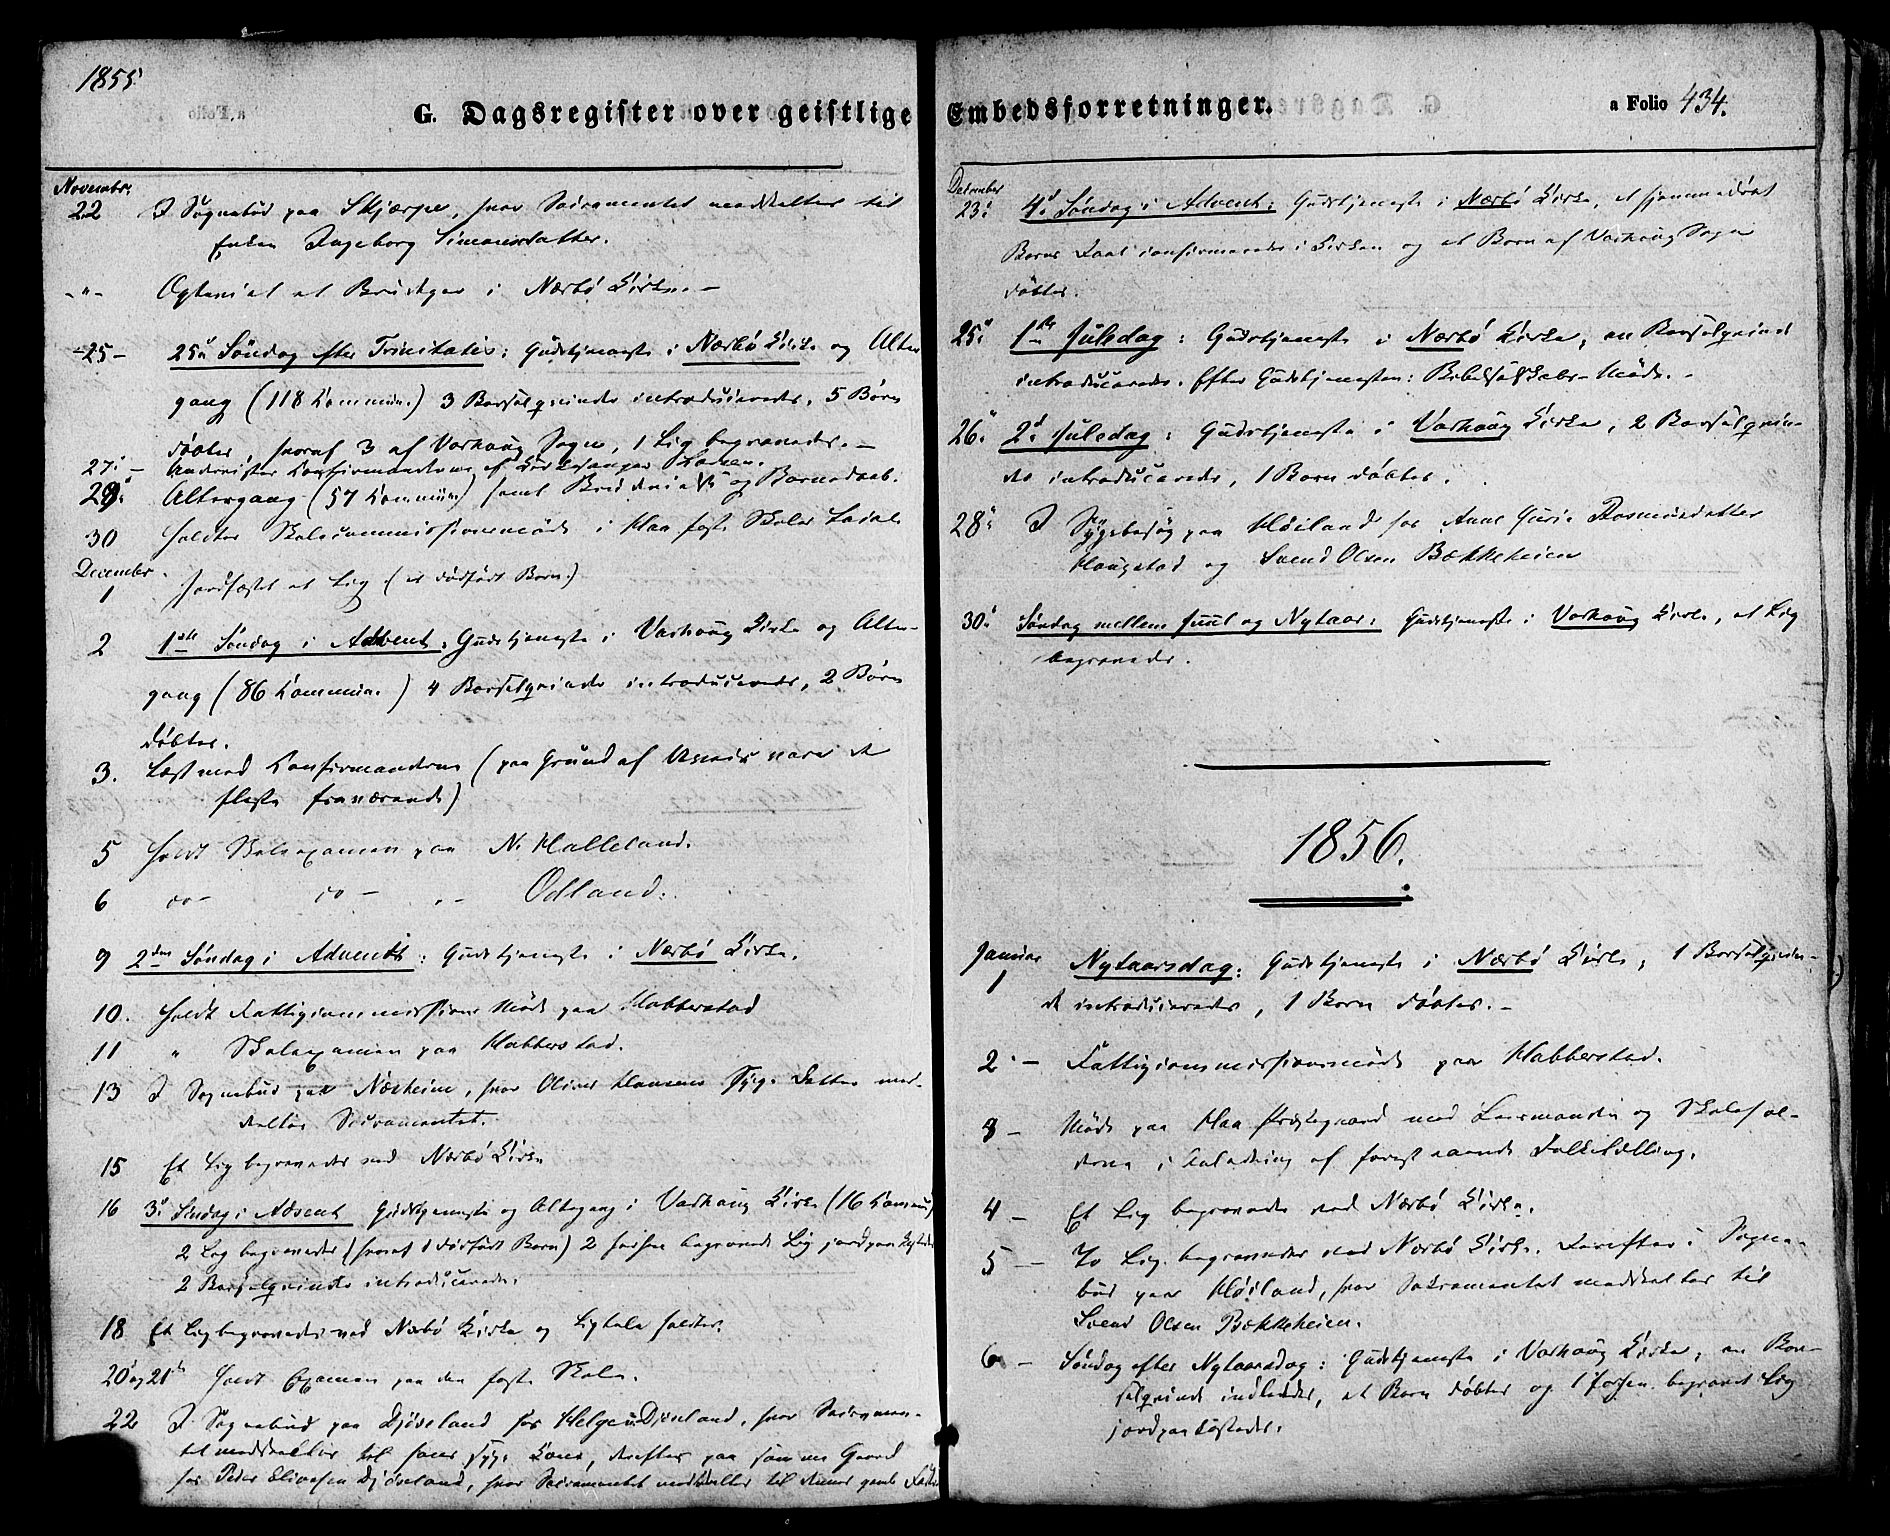 1855
G. Dagsregister over geistlige Embedsforretninger.
a Folio 434.
Novembr.
22 I Sognebud paa Skjærpe, hvor Sacramentet meddeltes til
Enken Ingeborg Simonsdatter.
-"- Ogteviet et Brudepar i Nærbö Kirke. -
-25- 25d Söndag efter Trinitatis: Gudstjeneste i Nærbö Kirke og Alter
gang (118 Commun.) 3 Barselqvinde introduceredes, 5 Börn
döbtes, hvoraf 3 af Varhoug Sogn, 1 Lig begravedes. -
27: - Underviste Confirmanderne af Kirkesanger
29: Altergang (57 Commun) samt Brudevielse og Barnedaab.
30 Holdtes Skolecommissionsmöde i Haa faste Skoles Locale
December
1 Jordfæstet et Lig (et dödfödt Barn.)
2 1ste Söndag i Advent: Gudstjeneste i Varhoug Kirke og Alter-
gang (86 Commun.) 4 Barselqvinde introduceredes, 2 Börn
döbtes.
3. Læst med Confirmanderne (paa Grund af Uveir vare de
fleste fraværende)
5 Holdt Skoleexamen paa N. Halleland.
6 do - do - " - Odland.
9 2den Söndag i Advent: Gudstjeneste i Nærbö Kirke.
10. Holdt Fattigcommissions Möde paa Habberstad
11 " Skoleexamen paa Habberstad.
13 I Sognebud paa Næsheim, hvor Hansens syge Datter med-
deltes Sacramentet.
15 Et Lig begravedes ved Nærbö Kirke
16 3d Söndag i Advent Gudstjeneste og Altergang i Varhoug Kirke (16 Commun)
2 Lig begravedes (hvoraf 1 dödfödt Barn) 2 forhen begravede Lig jordpaakastedes
2 Barselqvinde introduceredes.
18 Et Lig begravedes ved Nærbö Kirke og Ligtale holdtes.
20 og 21de Holdt Examen paa den faste Skole.
22 I Sognebud paa Djöseland hos Helge Djöseland, hvor Sacramen-
tet meddeltes til hans syge Kone, derefter paa samme Gaard
hos Peder Eliassen Djöseland, hvor Sacramentet meddeltes til dennes gamle
December
23: 4d Söndag i Advent: Gudstjeneste i Nærbö Kirke, et hjemmedöbt
Barns Daab confirmeredes i Kirken og et Barn af Varhoug Sogn
döbtes.
25: 1ste Juledag: Gudstjeneste i Nærbö Kirke, en Barselqvinde
introduceredes. Efter Gudstjenesten: Bibelselskabs-Möde. -
26: 2d Juledag: Gudstjeneste i Varhoug Kirke, 2 Barselqvin-
de introduceredes, 1 Barn döbtes.
28: I Sygebesög paa Höiland hos Anne Guri Rasmusdatter
Haugstad og Svend Olsen Bækkeheien
30: Söndag mellem Juul og Nytaar: Gudstjeneste i Varhoug Kirke, et Lig
begravedes.
1856.
Januar
1 Nytaarsdag: Gudstjeneste i Nærbö Kirke, 1 Barselqvin-
de introduceredes, 1 Barn döbtes. -
2. - Fattigcommissionsmöde paa Habberstad.
3 - Möde paa Haa Præstegaard med Lensmanden og Skolehol-
derne i Anledning af forestaaende Folketælling.
4 - Et Lig begravedes ved Nærbö Kirke.
5 - To Lig begravedes ved Nærbö Kirke. Derefter i Sogne-
bud paa Höiland, hvor Sakramentet meddeltes til
Svend Olsen Bækkeheien.
6 - Söndag efter Nytaarsdag: Gudstjeneste i Varhoug Kirke, en Bar-
selqvinde indlededes, et Barn döbtes og 1 forhen begravet Lig
jordpaakastedes.